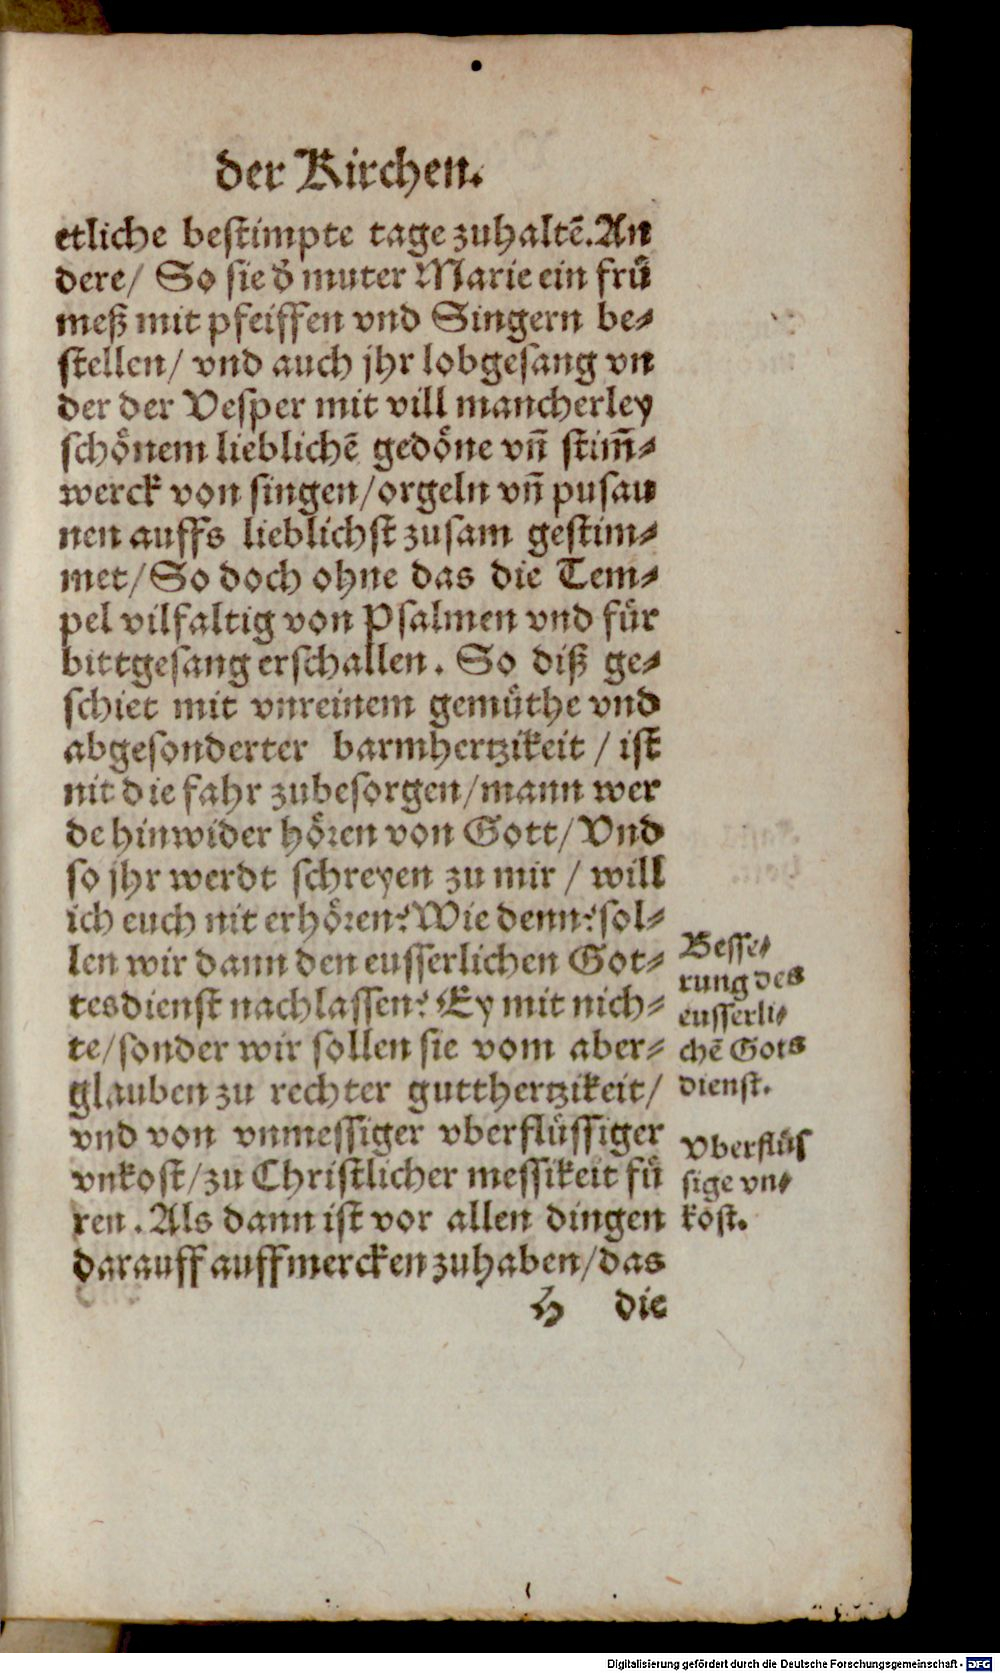 der Kirchen.
etliche bestimpte tage zuhaltẽ. An
dere/ So sie d̕ muter Marie ein fruͤ
meß mit pfeiffen vnd Singern be⸗
stellen/ vnd auch jhr lobgesang vn
der der Vesper mit vill mancherley
schoͤnem lieblichẽ gedoͤne vñ stim̃⸗
werck von singen/orgeln vñ pusau
nen auffs lieblichst zusam gestim⸗
met/So doch ohne das die Tem⸗
pel vilfaltig von Psalmen vnd fuͤr
bittgesang erschallen. So diß ge⸗
schiet mit vnreinem gemuͤthe vnd
abgesonderter barmhertzikeit / ist
nit die fahr zubesorgen/mann wer
de hinwider hoͤren von Gott/ Vnd
so jhr werdt schreyen zu mir / will
ich euch nit erhoͤren? Wie denn? sol⸗
len wir dann den eusserlichen Got⸗
tesdienst nachlassen? Ey mit nich⸗
te/sonder wir sollen sie vom aber⸗
glauben zu rechter gutthertzikeit/
vnd von vnmessiger vberfluͤssiger
vnkost/zu Christlicher messikeit fuͤ
ren. Als dann ist vor allen dingen
darauff auffmercken zuhaben/das
H die
Besse⸗
rung des
eusserli⸗
chẽ Gots
dienst.
Vberfluͤs
sige vn⸗
kost.
Digitalisierung gefördert durch die Deutsche Forschungsgemeinschaft - DFG